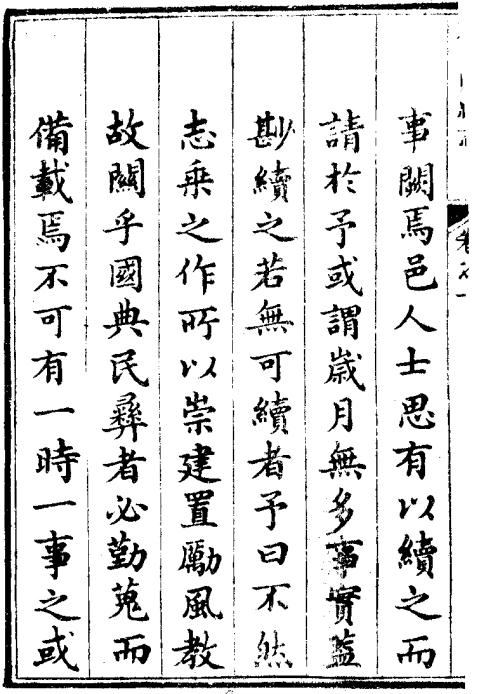 卷之一
事闕焉邑人士思有以續之而
請於予或謂歲月無多事實蓋
尠續之若無可續者予曰不然
志乘之作所以崇建置勵風教
故關乎國典民彝者必勤蒐而
備載焉不可有一時一事之或